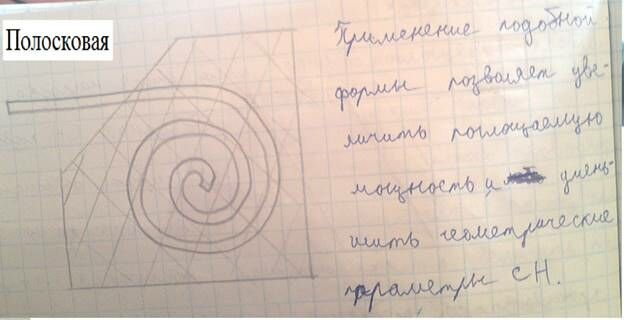 Полосковая
Применение подобной
формы позволяет уве-
личить поглощаемую
мощность и умень-
шить геометрические
параметры СН.